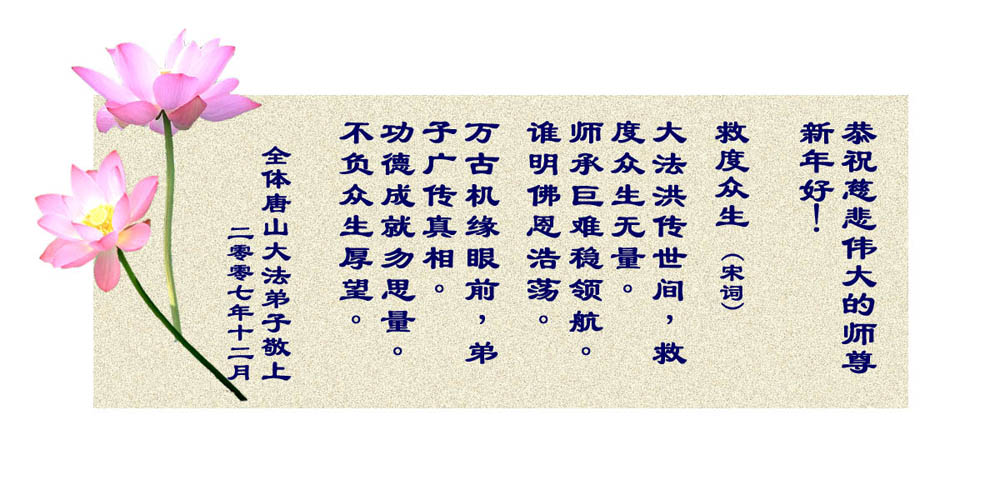 恭祝慈悲伟大的师尊
新年好！
救度众生（宋词）
大法洪传世间，救
度众生无量。
师承巨难稳领航。
谁明佛恩浩荡。
万古机缘眼前，弟
子广传真相。
功德成就勿思量。
不负众生厚望。
全体唐山大法弟子敬上
二零零七年十二月